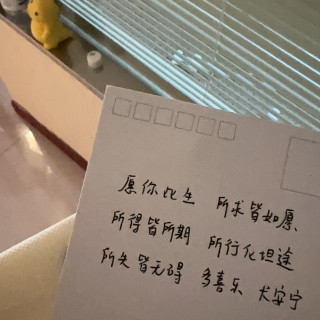 愿你此生 所求皆如愿
所得皆所期 所行化坦途
所失皆无碍 多喜乐 长安宁